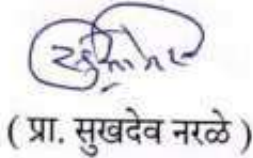 ( प्रा. सुखदेव नरळे )